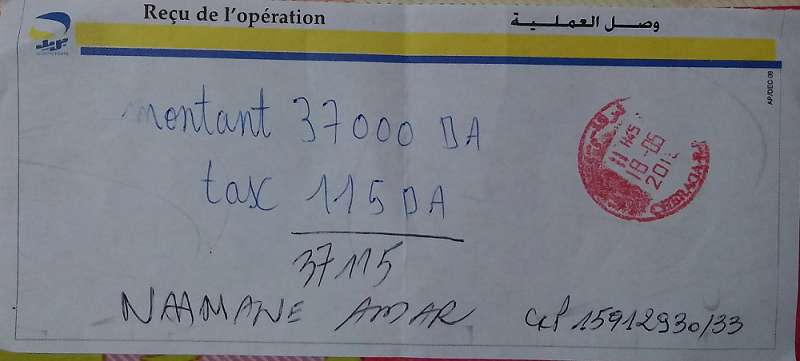 Reçu de l'opération
وصل العملية
بريد
AP/DEC 09
montant 37000 DA
tax 115 DA
37115
NAAMANE AMAR CCP 15912930/33
11H45
19-05